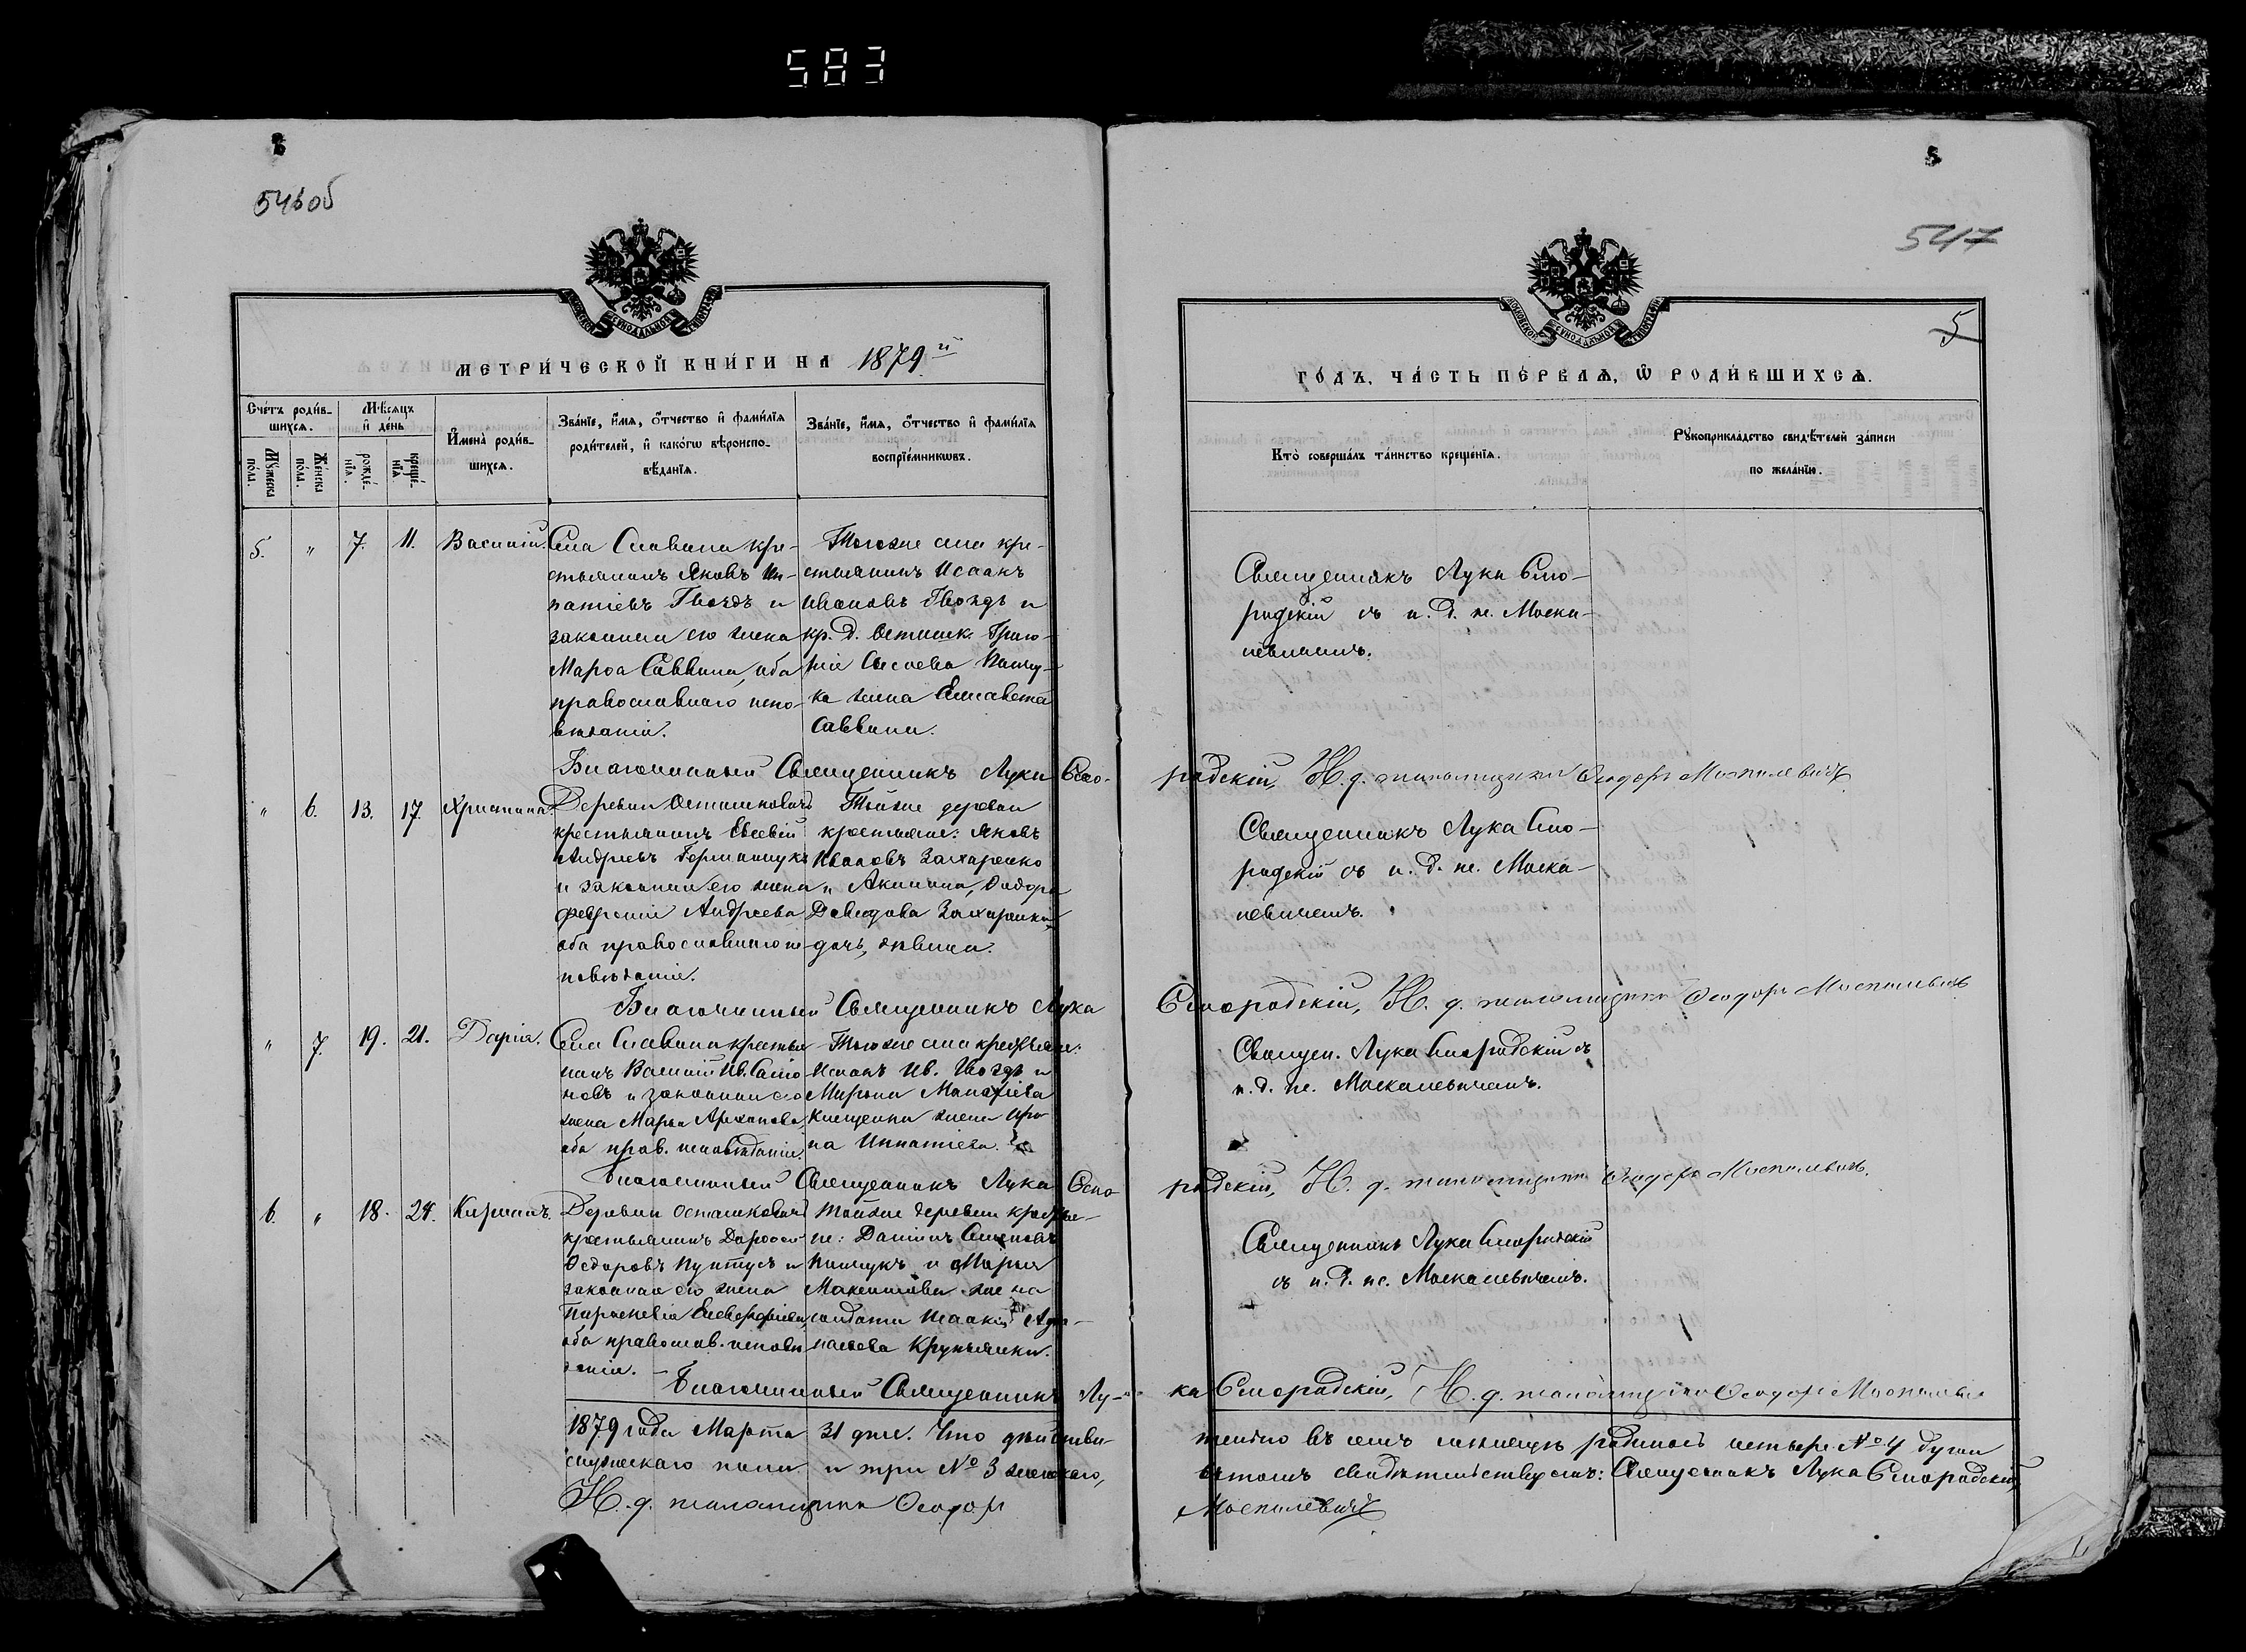 583
546об
547
5
МЕТРИ́ЧЕСКОЙ КНИ́ГИ НА 1879й
ГО́ДЪ, ЧА́СТЬ ПЕ́РВАѦ, Ѽ РОДИ́ВШИХСѦ.
Сче́тъ роди́в-
шихсѧ.
Мѣ́сѧцъ
и҆ де́нь
И҆мена̀ роди́в-
шихсѧ.
Зва́нїе, и҆́мѧ, ѻ҆́тчество и҆ фами́лїѧ
роди́телей, и҆ како́гѡ вѣроиспо-
вѣ́данїѧ.
Зва́нїе, и҆́мѧ, ѻ҆́тчество и҆ фами́лїѧ
воспрїе́мникѡвъ.
Мꙋ́жеска
по́ла.
Же́нска
по́ла.
рожде́-
нїѧ.
креще́-
нїѧ.
Кто̀ соверша́лъ та́инство креще́нїѧ.
Рꙋкоприкла́дство свидѣ́телей за́писи
по жела́нїю.
5. " 7. 11. Василій.
Села Славина кре-
стьянинъ Яковъ Иг-
натіевъ Гвоздь и
законная его жена
Марѳа Саввина, оба
православнаго испо-
вѣданія.
Тогоже села кре-
стьянинъ Исаакъ
Ивановъ Гвоздь и
кр. д. Григо-
рія Пашу-
ка жена Елисавета
Саввина.
Священникъ Лука Смо-
родскій съ и. д. пс. Моска-
левичемъ.
Благочинный Священникъ Лука Смо-
родскій, И. д. псаломщика Ѳеодоръ Москалевичъ
" 6. 13. 17. Христина.
Деревни Осташковичъ
крестьянинъ Евсевій
Андреевъ Германчукъ
и законная его жена
Февронія Андреева
оба православнаго ис-
повѣданія.
Тойже деревни
крестьяне: Яковъ
Ивановъ Захаренко
и Акилина, Ѳидора
Давидова Захаренка
дочь, дѣвица.
Священникъ Лука Смо-
родскій съ и. д. пс. Моска-
левичемъ.
Благочинный Священникъ Лука
Смородскій, И. д. псаломщика Ѳеодоръ Москалевичъ
" 7. 19. 21. Дарія.
Села Славина крестья-
нинъ Василій Ив.
и законная его
жена Марья
оба прав. исповѣданія.
Тогоже села крестьяне:
Исаакъ Ив. Гвоздь и
Марьяна
Клещенка жена Ири-
на Игнатіева.
Священ. Лука Смородскій съ
и. д. пс. Москалевичемъ.
Благочинный Священникъ Лука Смо-
родскій, И. д. псаломщика Ѳеодоръ Москалевичъ.
6. " 18. 24. Киріакъ.
Деревни Осташковичъ
крестьянинъ Дороѳей
Ѳедоровъ и
законная его жена
Параскевія
оба православ. исповѣ-
данія.
Тойже деревни крестья-
не: Даніилъ
Пашукъ и Марья
Максимова жена
солдата Исаакія
Священникъ Лука Смородскій
съ и. д. пс. Москалевичемъ.
Благочинный Священникъ Лу-
ка Смородскій, И. д. псаломщика Ѳеодоръ Москалевичъ
1879 года Марта 31 дня. Что дѣйстви-
тельно въ семъ мѣсяцѣ родилось четыре № 4 души
мужескаго пола и три № 3 женскаго,
въ томъ свидѣтельствуемъ: Священникъ Лука Смородскій,
И. д. псаломщика Ѳеодоръ
Москалевичъ